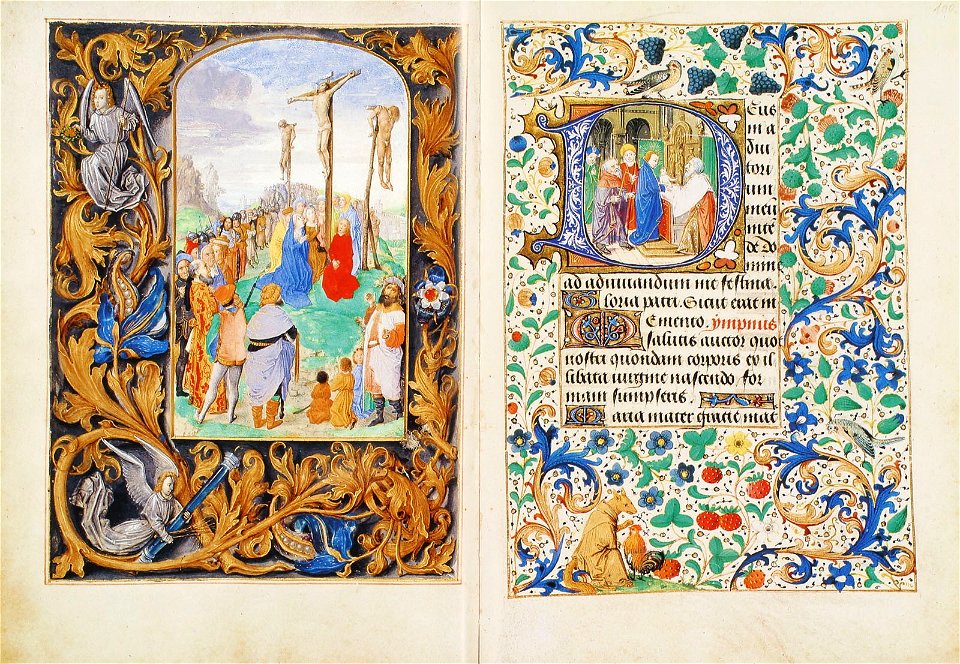 Deus
in a
diu
tori
um
meu
inte
de Do
mine
ad adiuuandum me festina
Gloria patri. Sicut erat in
Memento. ympnus
salutis auctor quod
nostri quondam corporis ex il
libata uirgine nascendo for
mam sumpseris.
Maria mater gracie mat